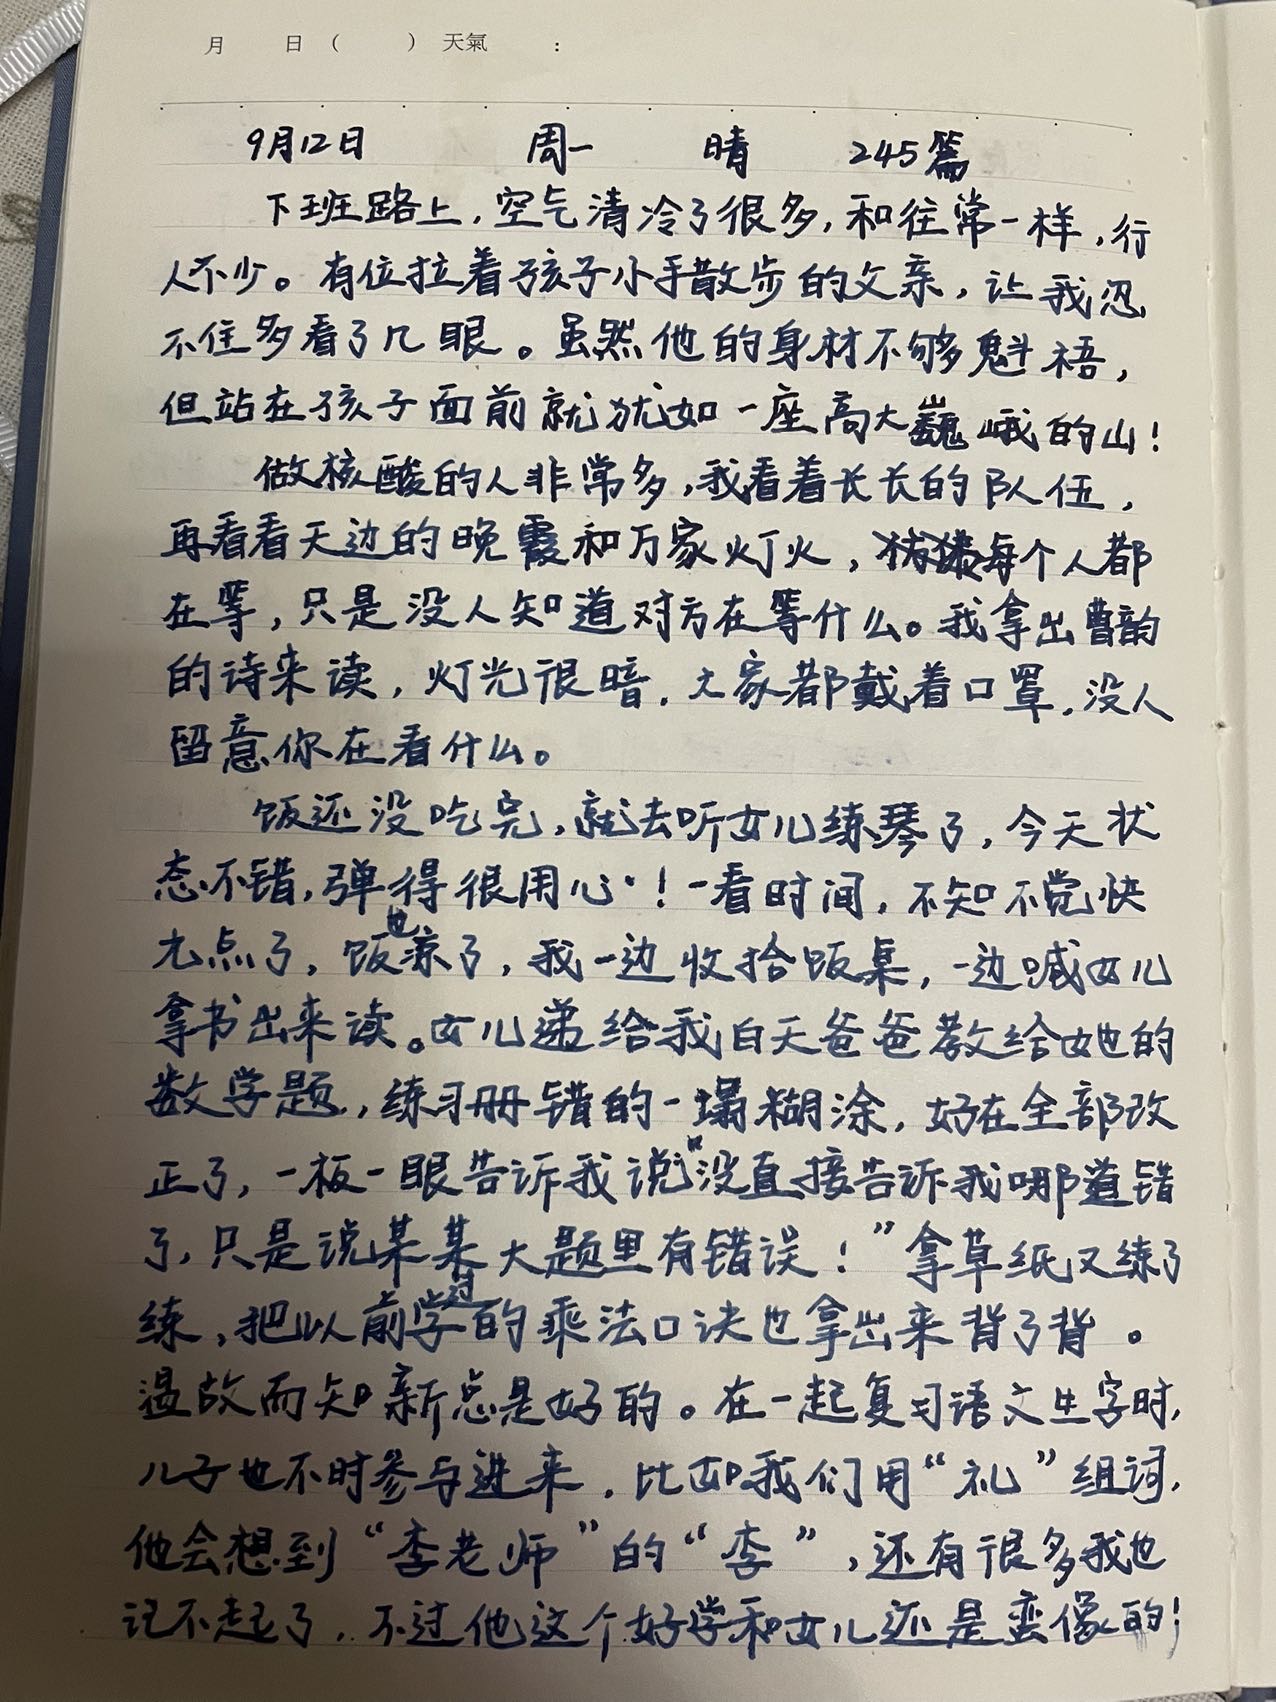 月 日（ ）天氣 :
9月12日 周一 晴 245篇
下班路上，空气清冷了很多，和往常一样，行
人不少。有位拉着孩子小手散步的父亲，让我忍
不住多看了几眼。虽然他的身材不够魁梧，
但站在孩子面前就犹如一座高大巍峨的山！
做核酸的人非常多，我看着长长的队伍，
再看看天边的晚霞和万家灯火，每个人都
在等，只是没人知道对方在等什么。我拿出曹韵
的诗来读，灯光很暗，大家都戴着口罩，没人
留意你在看什么。
饭还没吃完，就去听女儿练琴了，今天状
态不错，弹得很用心！一看时间，不知不觉快
九点了，饭也凉了，我一边收拾饭桌，一边喊女儿
拿书出来读。女儿递给我白天爸爸教给她的
数学题，练习册错的一塌糊涂，好在全部改
正了，一板一眼告诉我说“没直接告诉我哪道错
了，只是说某某大题里有错误！”拿草纸又练了
练，把以前学过的乘法口诀也拿出来背了背。
温故而知新总是好的。在一起复习语文生字时，
儿子也不时参与进来，比如我们用“礼”组词，
他会想到“李老师”的“李”，还有很多我也
记不起了，不过他这个好学和女儿还是蛮像的！